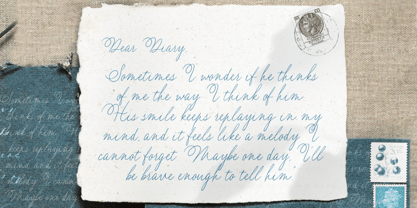 Dear Diary,
Sometimes I wonder if he thinks
of me the way I think of him
His smile keeps replaying in my
mind, and it feels like a melody I
cannot forget. Maybe one day, I'll
be brave enough to tell him